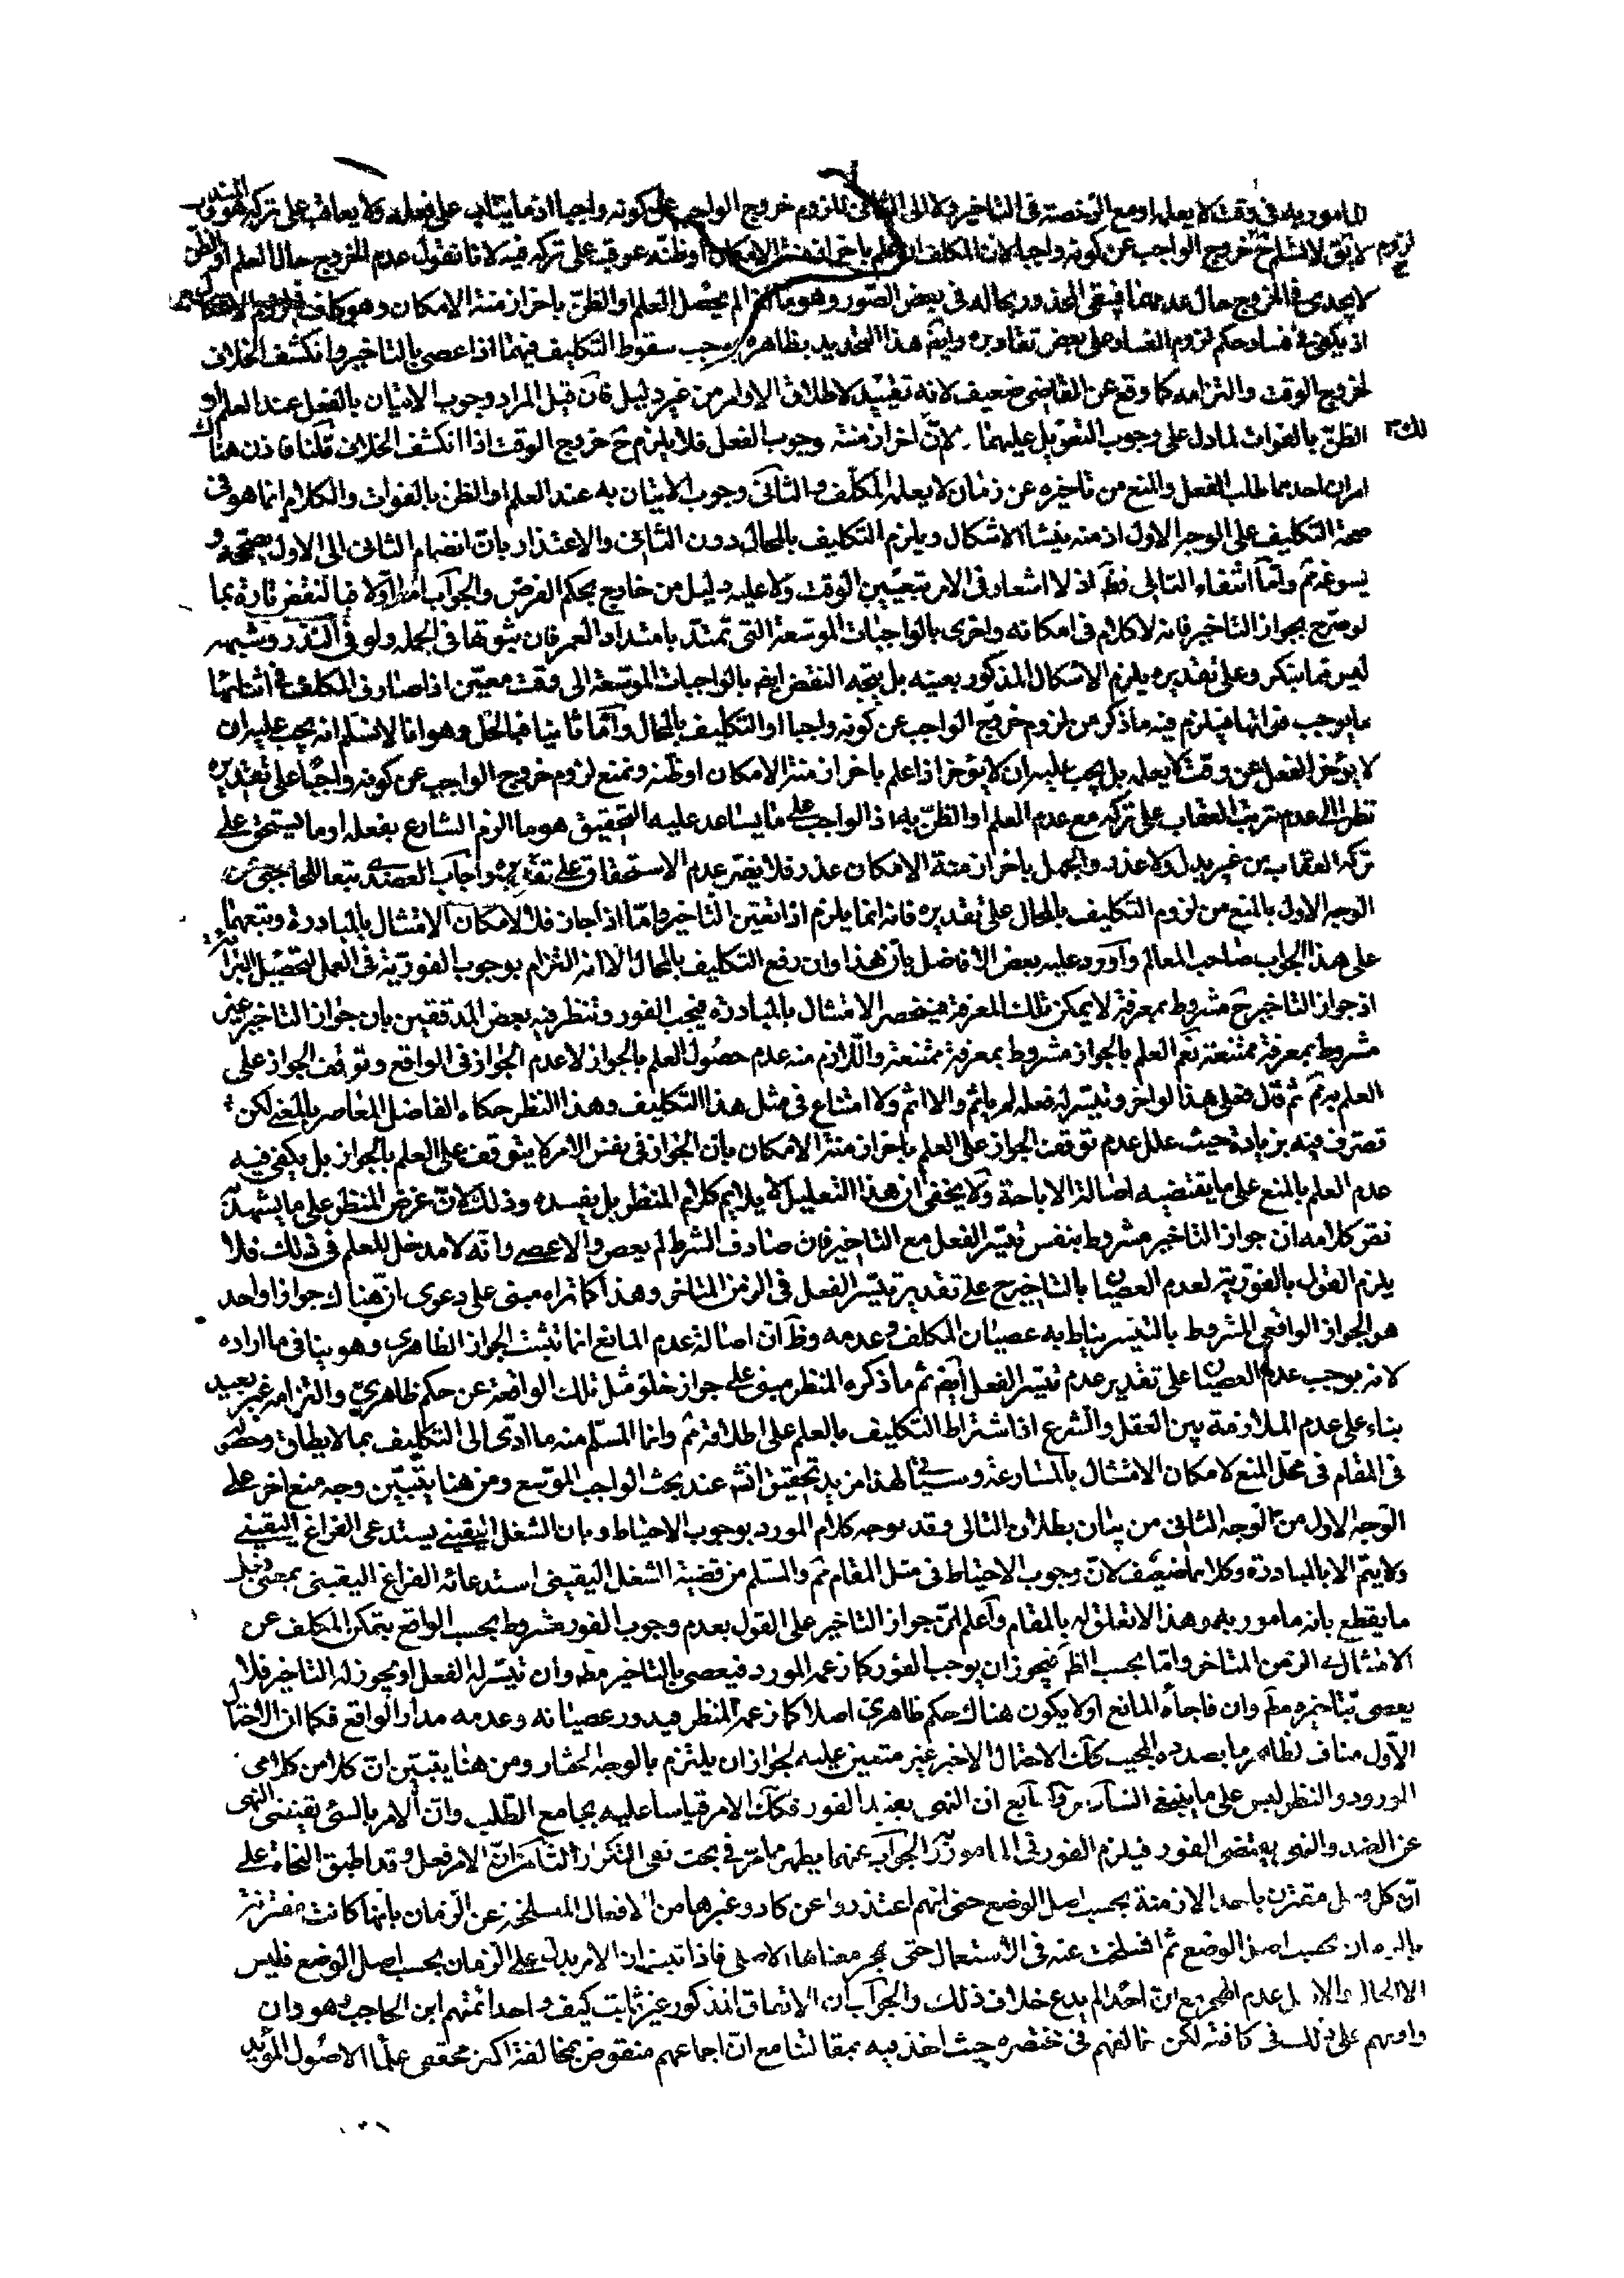 المامور به فى وقت لا يعلمه او مع الرخصة فى التاخير ولا الى الثانى للزوم خروج الواجب عن كونه واجبا اذ ما يثاب على فعله ولا يعاقب على تركه هو المندوب
لا يق لا نسلم ح لزوم خروج الواجب عن كونه واجبا لان المكلف ان علم باخر ازمنة الامكان او ظنه عوقب على تركه فيه لانا نقول عدم الخروج حال العلم او الظن
لا يجدى فى الخروج حال عدمهما فيبقى المحذور بحاله فى بعض الصور وهو ما اذا لم يحصل العلم او الظن باخر ازمنة الامكان وهو كاف فى لزوم الاشكال
اذ يكفى فى فساد حكم لزوم الفساد على بعض تقاديره وايضا هذا التحديد بظاهره يوجب سقوط التكليف فيما اذا عصى بالتاخير وانكشف الخلاف
لخروج الوقت والتزامه كما وقع عن القاضى ضعيف لانه تقييد لاطلاق الاوامر من غير دليل فان قيل المراد وجوب الاتيان بالفعل عند العلم او
الظن بالفوات لما دل على وجوب التعويل عليهما لا لان اخر ازمنته وجوب الفعل فلا يلزم ح خروج الوقت اذا انكشف الخلاف قلنا فاذن هناك
امران احدهما طلب الفعل والمنع من تاخيره عن زمان لا يعلمه المكلف والثانى وجوب الاتيان به عند العلم او الظن بالفوات والكلام انما هو فى
صحة التكليف على الوجه الاول اذ منه ينشا الاشكال ويلزم التكليف بالمحال دون الثانى والاعتذار بان انضمام الثانى الى الاول يصححه و
يسوغه ثم واما انتفاء التالى فظ اذ لا اشعار فى الامر بتعيين الوقت ولا عليه دليل من خارج بحكم الفرض والجواب اما اولا فبالنقض تارة بما
لو صرح بجواز التاخير فانه لا كلام فى امكانه واخرى بالواجبات الموسعة التى تمتد بامتداد العمر فان ثبوتها فى الجملة ولو فى النذر وشبهه
ليس مما ينكر وعلى تقديره يلزم الاشكال المذكور بعينه بل يتجه النقض ايضا بالواجبات الموسعة الى وقت معين اذا صادف المكلف فى اثنائها
ما يوجب فواتها فيلزم فيه ما ذكر من لزوم خروج الواجب عن كونه واجبا او التكليف بالمحال واما ثانيا فبالحل وهو انا لا نسلم انه يجب عليه ان
لا يؤخر الفعل عن وقت لا يعلمه بل يجب عليه ان لا يؤخر اذا علم باخر ازمنة الامكان او ظنه ونمنع لزوم خروج الواجب عن كونه واجبا على تقديره
نظرا الى عدم ترتب العقاب على تركه مع عدم العلم او الظن به اذ الواجب على ما يساعد عليه التحقيق هو ما الزم الشارع بفعله او ما يستحق على
تركه العقاب من غير بدل ولا عذر والجهل باخر ازمنة الامكان عذر فلا يضر عدم الاستحقاق على تقديره واجاب العضدى تبعا للحاجبى عن
الوجه الاول بالمنع من لزوم التكليف بالمحال على تقديره فانه انما يلزم اذا تعين التاخير واما اذا جاز فلا لامكان الامتثال بالمبادرة وتبعهما
على هذا الجواب صاحب المعالم واورد عليه بعض الافاضل بان هذا وان رفع التكليف بالمحال الا انه التزام بوجوب الفورية فى العمل لتحصيل البرائة
اذ جواز التاخير ح مشروط بمعرفة لا يمكن تلك المعرفة فينحصر الامتثال بالمبادرة فيجب الفور وتنظر فيه بعض المدققين بان جواز التاخير غير
مشروط بمعرفة ممتنعة نعم العلم بالجواز مشروط بمعرفة ممتنعة واللازم منه عدم حصول العلم بالجواز لا عدم الجواز فى الواقع وتوقف الجواز على
العلم به ثم قال فعلى هذا لو اخر وتيسر له فعله لم ياثم والا اثم ولا امتناع فى مثل هذا التكليف وهذا النظر حكاه الفاضل المعاصر بالمعنى لكن
تصرف فيه بزيادة حيث علل عدم توقف الجواز على العلم باخر ازمنة الامكان بان الجواز فى نفس الامر لا يتوقف على العلم بالجواز بل يكفى فيه
عدم العلم بالمنع على ما يقتضيه اصالة الاباحة ولا يخفى ان هذا التعليل لا يلايم كلام المنظر بل يفسده وذلك لان غرض المنظر على ما يشهد به
نص كلامه ان جواز التاخير مشروط بنفس تيسر الفعل مع التاخير فان صادف الشرط لم يعص والا عصى وانه لا مدخل للعلم فى ذلك فلا
يلزم القول بالفورية لعدم العصيان بالتاخير ح على تقدير تيسر الفعل فى الزمن المتاخر وهذا كما تراه مبنى على دعوى ان هناك جوازا واحد
هو الجواز الواقعى المشروط بالتيسر يناط به عصيان المكلف وعدمه وظ ان اصالة عدم المانع انما تثبت الجواز الظاهرى وهو ينافى ما اراده
لانه يوجب عدم العصيان على تقدير عدم تيسر الفعل ايضا ثم ما ذكره المنظر مبنى على جواز خلو مثل تلك الواقعة عن حكم ظاهرى والتزامه غير بعيد
بناء على عدم الملازمة بين العقل والشرع اذ اشتراط التكليف بالعلم على اطلاقه ثم وانما المسلم منه ما ادى الى التكليف بما لا يطاق وحصوله
فى المقام فى محل المنع لامكان الامتثال بالمسارعة وسيجيئ لهذا مزيد تحقيق انش عند بحث الواجب الموسع ومن هنا يتبين وجه منع اخر على
الوجه الاول من الوجه الثانى من بيان بطلان التالى وقد يوجه كلام المورد بوجوب الاحتياط وبان الشغل اليقينى يستدعى الفراغ اليقينى
ولا يتم الا بالمبادرة وكلاهما ضعيف لان وجوب الاحتياط فى مثل المقام ثم والمسلم من قضية الشغل اليقينى استدعائه الفراغ اليقينى بمعنى فعل
ما يقطع بانه مامور به وهذا لا تعلق له بالمقام واعلم ان جواز التاخير على القول بعدم وجوب الفور مشروط بحسب الواقع بتمكن المكلف عن
الامتثال فى الزمن المتاخر واما بحسب الظ فيجوز ان يوجب الفور كما زعمه المورد فيعصى بالتاخير مط وان تيسر له الفعل او يجوز له التاخير فلا
يعصى بتاخيره مط وان فاجأه المانع او لا يكون هناك حكم ظاهرى اصلا كما زعمه المنظر فيدور عصيانه وعدمه مدار الواقع فكما ان الاحتمال
الاول مناف لظاهر ما بصدده المجيب كك الاحتمال الاخير غير متعين عليه لجواز ان يلتزم بالوجه المختار ومن هنا يتبين ان كلا من كلامى
المورد والمنظر ليس على ما ينبغى السادس والسابع ان النهى يفيد الفور فكك الامر قياسا عليه بجامع الطلب وان الامر بالشئ يقتضى النهى
عن الضد والنهى يقتضى الفور فيلزم الفور فى المامور به والجواب عنهما يظهر مما مر فى بحث نفى التكرار الثامن ان الامر فعل وقد اطبق النحاة على
ان كل فعل مقترن باحد الازمنة بحسب اصل الوضع حتى انهم اعتذروا عن كاد وغيرها من الافعال المنسلخة عن الزمان بانها كانت مقترنة
بالزمان بحسب اصل الوضع ثم انسلخت عنه فى الاستعمال حتى هجر معناها الاصلى فاذا تبين ان الامر يدل على الزمان بحسب اصل الوضع فليس
الا الحال والاصل عدم الهجر مع ان احدا لم يدع خلاف ذلك والجواب ان الاتفاق المذكور غير ثابت كيف واحد ائمتهم ابن الحاجب وهو وان
وافقهم على ذلك فى كافيته لكن خالفهم فى مختصره حيث اخذ فيه بمقالتنا مع ان اجماعهم منقوض بمخالفة اكثر محققى علماء الاصول المؤيد